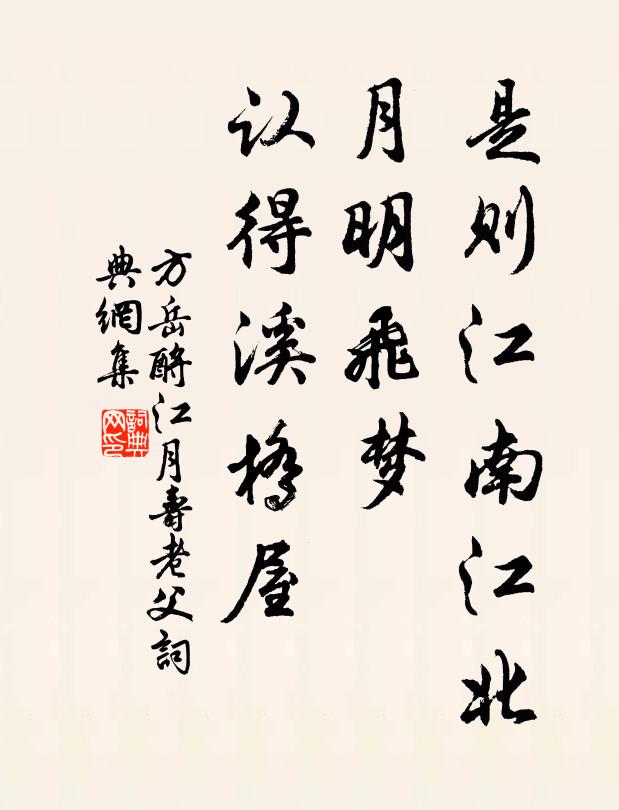 是则江南江北
月明飛梦
认得溪橋屋
方岳酹江月壽老父詞
典網集
詞典
网印